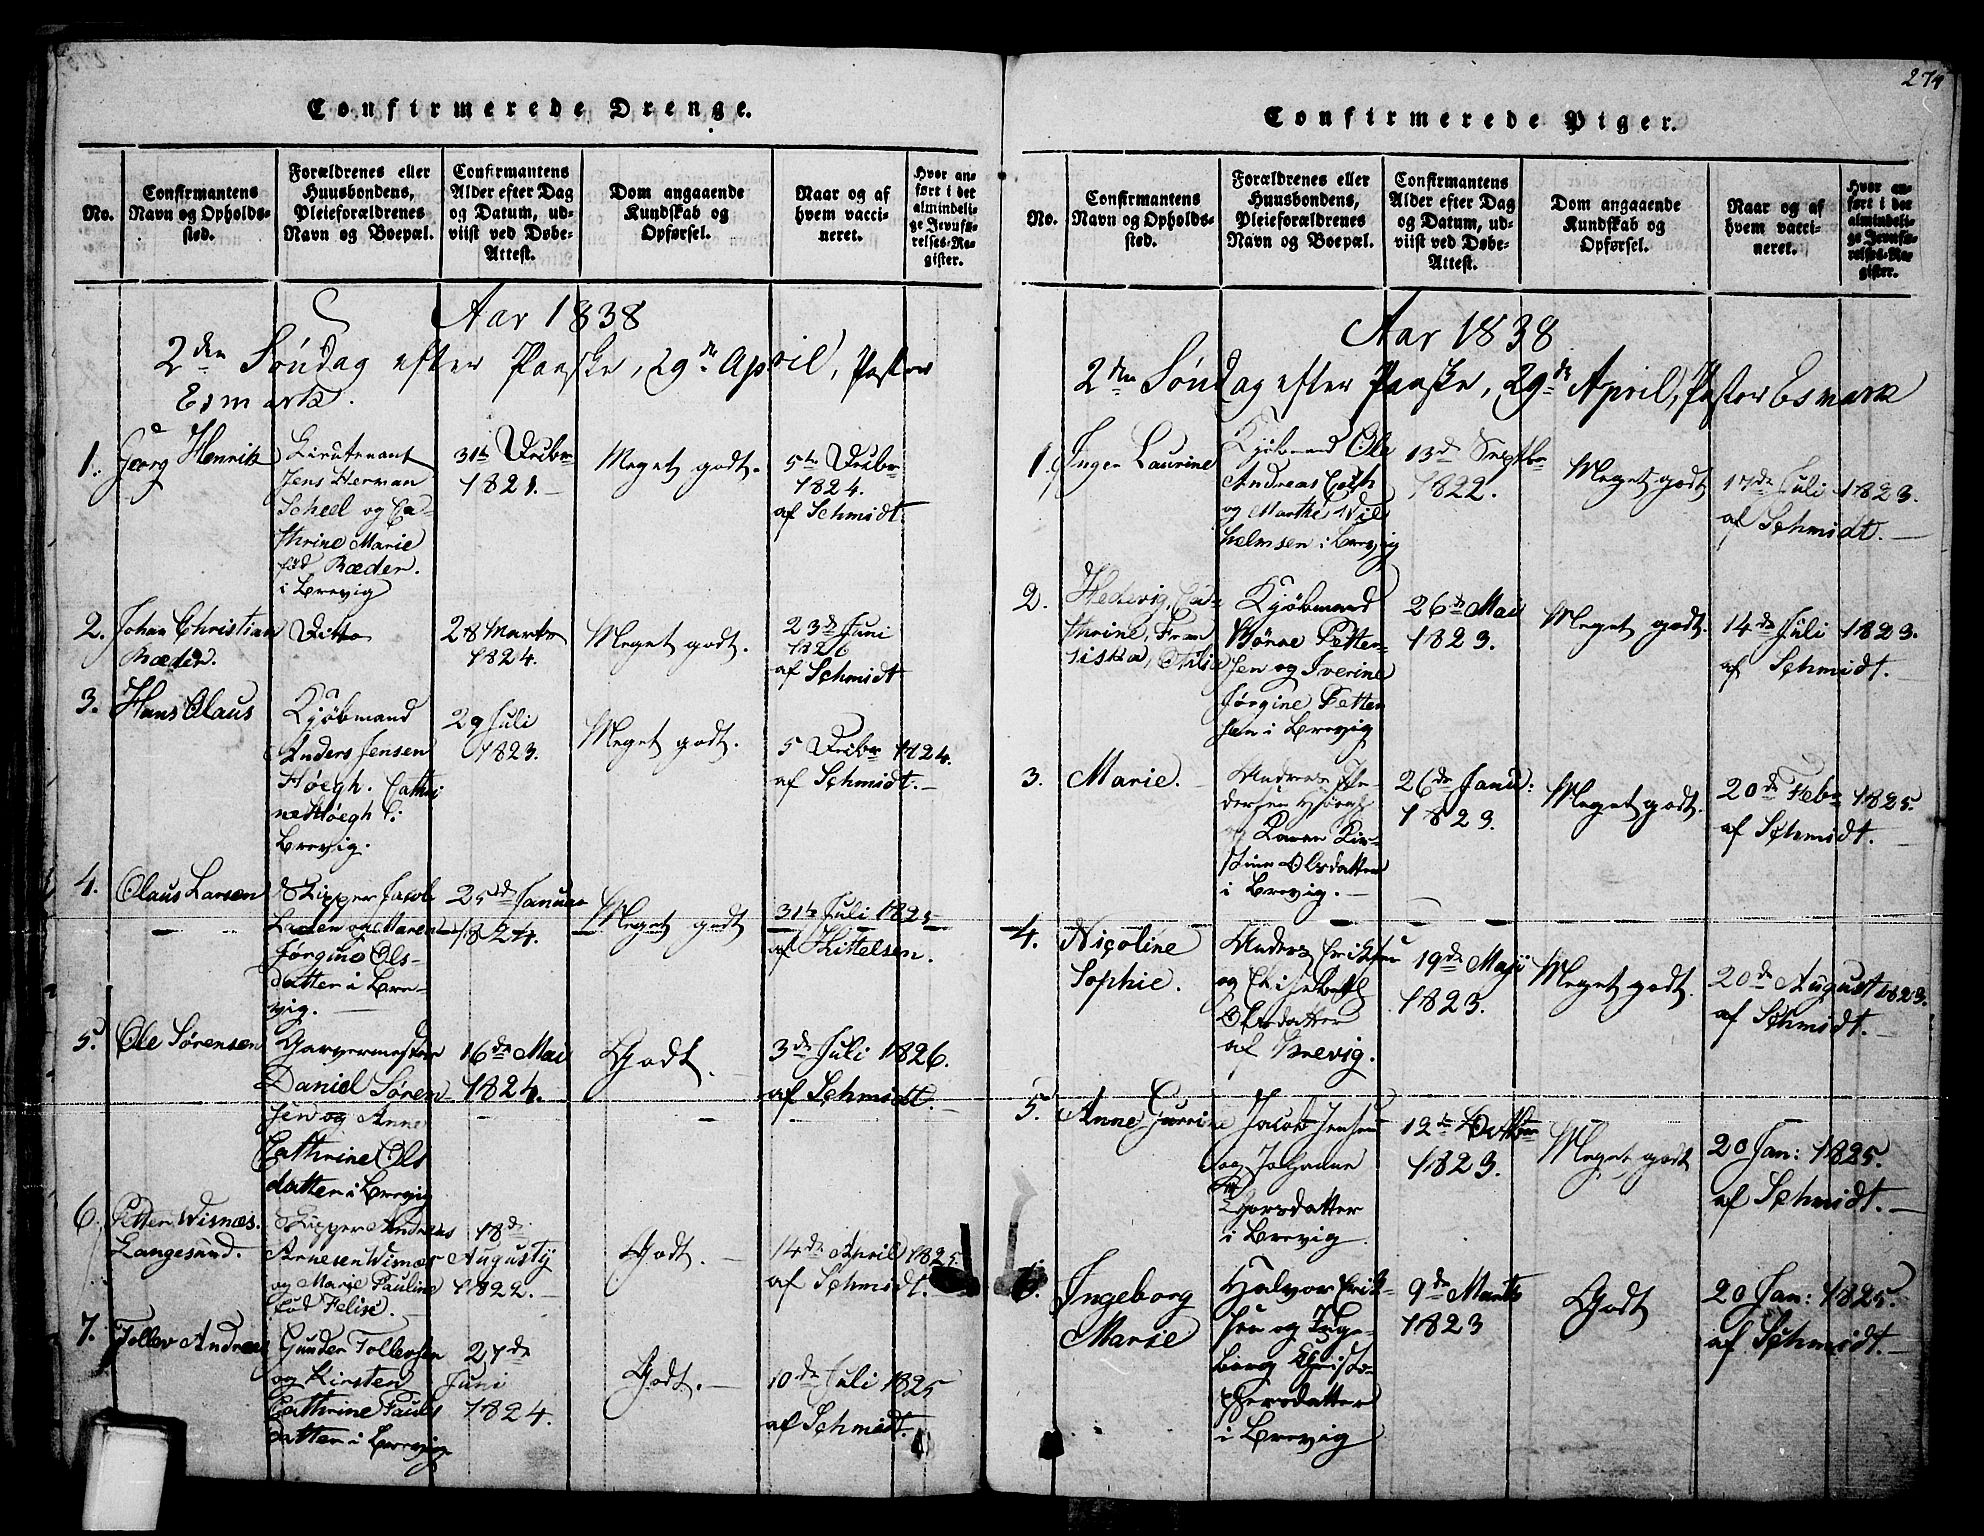 274
Confirmerede Drenge.
No.
Confirmantens
Navn og Opholds-
sted.
Forældrenes eller
Huusbondens,
Pleieforældrenes
Navn og Boepæl.
Confirmantens
Alder efter Dag
og Datum, ud-
viist ved Døbe-
Attest.
Dom angaaende
Kundskab og
Opførsel.
Naar og af
hvem vacci-
neret.
Hvor an-
ført i det
almindeli-
ge Jevnfø-
relses-Re-
gister.
Aar 1838
2den Søndag efter Paaske, 29de April, Pastor
Esmark.
1. Georg Henrik
Lieutenant
Jens Herman
Scheel og Ca-
thrine Marie
fød Ræder.
i Brevig
31te Decbr
1821.
Meget godt.
5te Decbr
1824.
af Schmidt.
2. Johan Christian
Ræder.
Ditto
28 Marts
1824.
Meget godt.
23de Juni
1826
af Schmidt
3. Hans Claus
Kjøbmand
Anders Jensen
Høegh. Cathri
ne Høegh i
Brevig.
29 Juli
1823.
Meget godt.
5 Decbr 1824.
af Schmidt.
4. Claus Larsen
Skipper Jacob
Larsen og Maren
Jørgine Ols-
datter i Bre-
vig.
25de Januar
1824.
Meget godt
31te Juli 1825
af Kittelsen.
5. Ole Sørensen
Garvermester
Daniel Søren
sen og Anne
Cathrine Ols
datter i Brevig
16de Mai
1824.
Godt.
3de Juli 1826.
af Schmidt.
6. Petter Wisnæs.
Langesund.
Skipper Andreas
Arnesen Wisnæs
og Marie Pauline
fød Felise.
18de
Augusty
1822.
Godt.
14de April 1825.
af Schmidt.
7. Tollev Andreas
Gunder Tollevsen
og Kirsten
Cathrine Pauls
datter i Brevig
27de
Juni
1824.
Godt.
10de Juli 1825
af Schmidt.
Confirmerede Piger.
No.
Confirmantens
Navn og Opholds-
sted.
Forældrenes eller
Huusbondens,
Pleieforældrenes
Navn og Boepæl.
Confirmantens
Alder efter Dag
og Datum, ud-
viist ved Døbe-
Attest.
Dom angaaende
Kundskab og
Opførsel.
Naar og af
hvem vacci-
neret.
Hvor an-
ført i det
almindeli-
ge Jevnfø-
relses-Re-
gister.
Aar 1838
2den Søndag efter Paaske, 29de April, Pastor Esmark
1. Inger Laurine
Kjøbmand Ole
Andreas
og Marthe Wil
helmsen i Brevig
13de Septbr
1822.
Meget godt
17de Juli 1823.
af Schmidt.
2. Hedevig, Ca-
thrine,
Kjøbmand
Børre Petter-
sen og Iverine
Jørgine Petter
sen i Brevig
26de Mai
1823.
Meget godt.
14de Juli 1823.
af Schmidt.
3. Marie.
Andreas Pe-
dersen
og Karen Kir-
stine Olsdatter
i Brevig.
26de Janu:
1823.
Meget godt.
20de Febr 1825.
af Schmidt.
4. Nicoline
Sophie.
Anders Eriksen
og Elisabeth
Olsdatter
af Brevig.
19de Maji
1823.
Meget godt.
20de August 1823.
af Schmidt.
5. Anne Gurine
Jacob Jensen
og Johanne
Thorsdatter
i Brevig.
12te Octbr
1823.
Meget godt
20 Jan: 1825.
af Schmidt.
6. Ingeborg
Marie
Halvor Erik-
sen og Inge-
borg Christo-
phersdatter
i Brevig
9de Marts
1823
Godt
20 Jan: 1825.
af Schmidt.